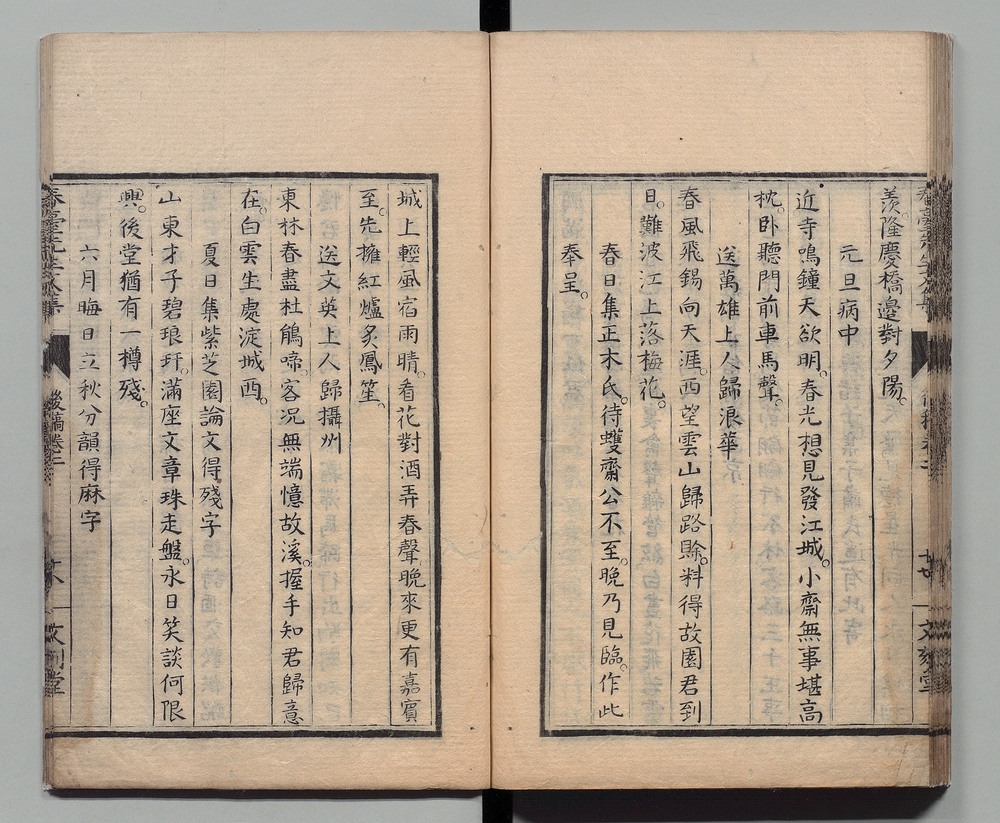 羨。隆慶橋邊對夕陽。
元旦病中
近寺鳴鐘天欲明。春光想見發江城。小齋無事堪高
枕。卧聽門前車馬聲。
送萬雄上人歸浪華
春風飛錫向天涯。西望雲山歸路賒。料得故園君到
日。難波江上落梅花。
春日集正木氏。待蠖齋公不至。晚乃見臨。作此
奉呈。
城上輕風宿雨晴。看花對酒弄春聲。晚來更有嘉賓
至。先擁紅爐炙鳳笙。
送文英上人歸攝州
東林春盡杜鵑啼。客況無端憶故溪。握手知君歸意
在。白雲生處淀城西。
夏日集紫芝園論文得殘字
山東才子碧琅玕。滿座文章珠走盤。永日笑談何限
興。後堂猶有一樽殘。
六月晦日立秋分韻得麻字
春臺先生文集
後稿卷三